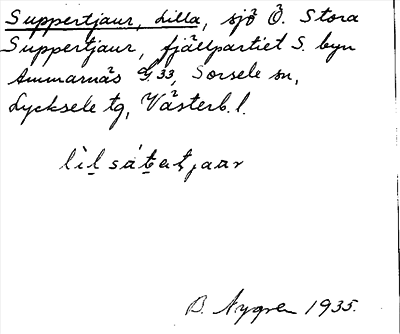 Suppertjaur, Lilla, sjö Ö. Stora
Suppertjaur, fjällpartiet S. byn
Ammarnäs G 33, Sorsele sn,
Lycksele tg, Västerb. l.
B. Nygren 1935.